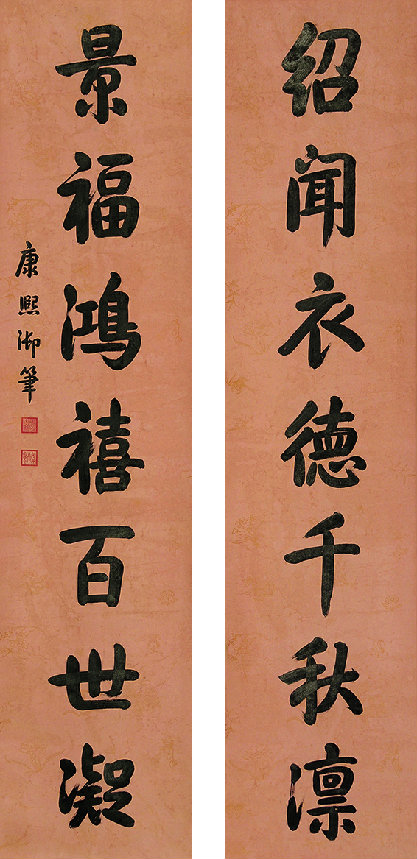 紹聞衣德千秋凛
景福鴻禧百世凝
康熙御筆